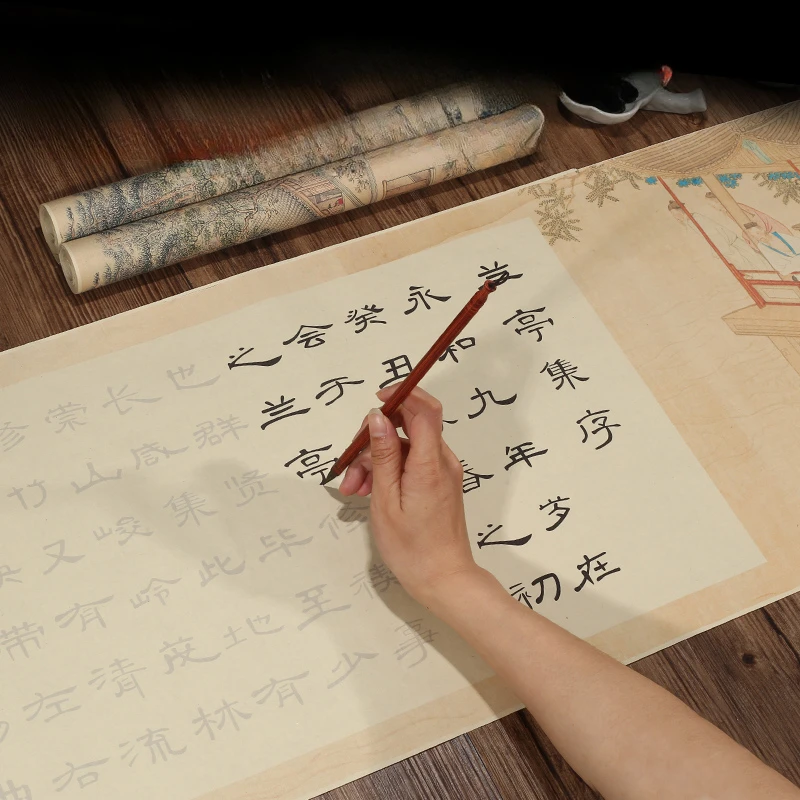 兰亭集序
永和九年岁在
癸丑春之初
会于
之兰亭修禊事
也群贤毕至少
长咸集此地有
崇山峻岭茂林
修竹又有清流
映带左右